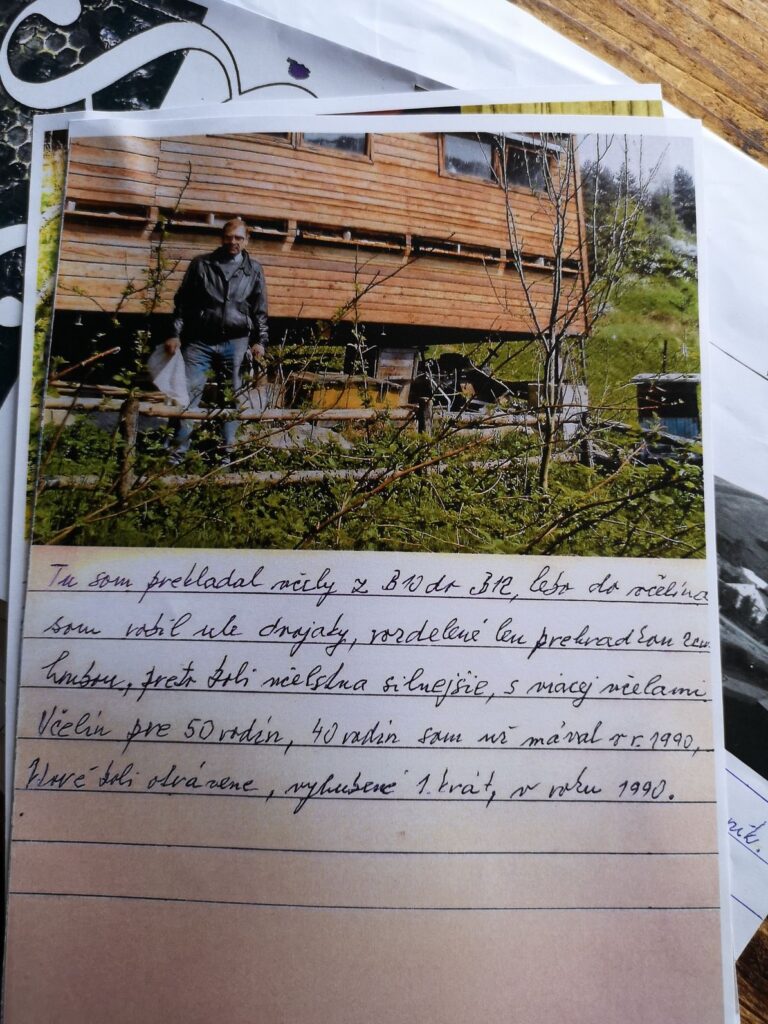 Tu som prekladal včely z B10 do B12, lebo do včelína
som robil ule dvojaky, rozdelené len prehradkou 2cm
hrubou, preto boli včelstva silnejšie, s viacej včelami
Včelín pre 50 rodín, 40 rodín som už mával v r. 1990,
ktoré boli otrávene, vyhubené 1. krát, v roku 1990.